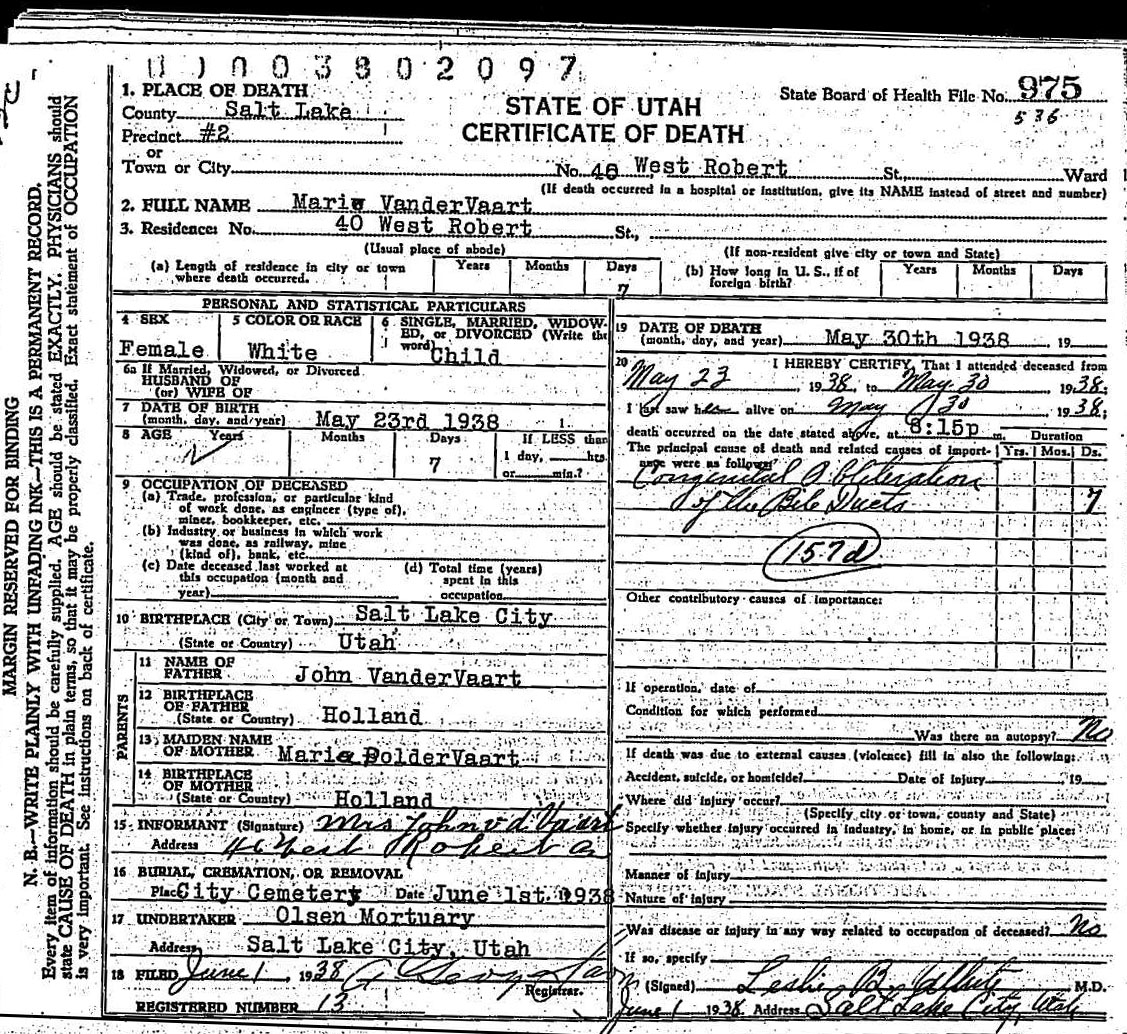 0 0 0 3 8 0 2 0 9 7
MARGIN RESERVED FOR BINDING
N. B.—WRITE PLAINLY WITH UNFADING INK—THIS IS A PERMANENT RECORD.
Every item of information should be carefully supplied. AGE should be stated EXACTLY. PHYSICIANS should
state CAUSE OF DEATH in plain terms, so that it may be properly classified. Exact statement of OCCUPATION
is very important. See instructions on back of certificate.
STATE OF UTAH
CERTIFICATE OF DEATH
State Board of Health File No. 975
536
1. PLACE OF DEATH
County Salt Lake
Precinct #2
or
Town or City No. 40 West Robert St., Ward
(If death occurred in a hospital or institution, give its NAME instead of street and number)
2. FULL NAME Marie VanderVaart
3. Residence: No. 40 West Robert St.,
(Usual place of abode) (If non-resident give city or town and State)
(a) Length of residence in city or town where death occurred. Years Months Days 7
(b) How long in U. S., if of foreign birth? Years Months Days
PERSONAL AND STATISTICAL PARTICULARS
4 SEX Female
5 COLOR OR RACE White
6 SINGLE, MARRIED, WIDOWED, or DIVORCED (Write the word) Child
6a If Married, Widowed, or Divorced
HUSBAND OF
(or) WIFE OF
7 DATE OF BIRTH
(month, day, and year) May 23rd 1938
8 AGE Years Months Days 7
If LESS than
1 day, hrs.
or min.?
9 OCCUPATION OF DECEASED
(a) Trade, profession, or particular kind
of work done, as engineer (type of),
miner, bookkeeper, etc.
(b) Industry or business in which work
was done, as railway, mine
(kind of), bank, etc.
(c) Date deceased last worked at
this occupation (month and
year)
(d) Total time (years)
spent in this
occupation
10 BIRTHPLACE (City or Town) Salt Lake City
(State or Country) Utah
PARENTS
11 NAME OF
FATHER John VanderVaart
12 BIRTHPLACE
OF FATHER
(State or Country) Holland
13 MAIDEN NAME
OF MOTHER Marie PolderVaart
14 BIRTHPLACE
OF MOTHER
(State or Country) Holland
15 INFORMANT (Signature) Mrs John v.d. Vaart
Address 40 West Robert
16 BURIAL, CREMATION, OR REMOVAL
Place City Cemetery Date June 1st. 1938
17 UNDERTAKER Olsen Mortuary
Address Salt Lake City, Utah
18 FILED June 1 1938
Registrar.
REGISTERED NUMBER 13
19 DATE OF DEATH
(month, day, and year) May 30th 1938 19
20 I HEREBY CERTIFY, That I attended deceased from
May 23, 1938, to May 30 1938;
I last saw her alive on May 30 1938;
death occurred on the date stated above, at 8:15p m. Duration
The principal cause of death and related causes of importance were as follows: Yrs. Mos. Ds.
Congenital Obliteration
of the Bile Ducts 7
157d
Other contributory causes of importance:
If operation, date of
Condition for which performed
Was there an autopsy? No
If death was due to external causes (violence) fill in also the following:
Accident, suicide, or homicide? Date of injury 19
Where did injury occur?
(Specify city or town, county and State)
Specify whether injury occurred in industry, in home, or in public place:
Manner of injury
Nature of injury
Was disease or injury in any way related to occupation of deceased? No
If so, specify
(Signed) Leslie B. M.D.
June 1 1938 Address Salt Lake City, Utah